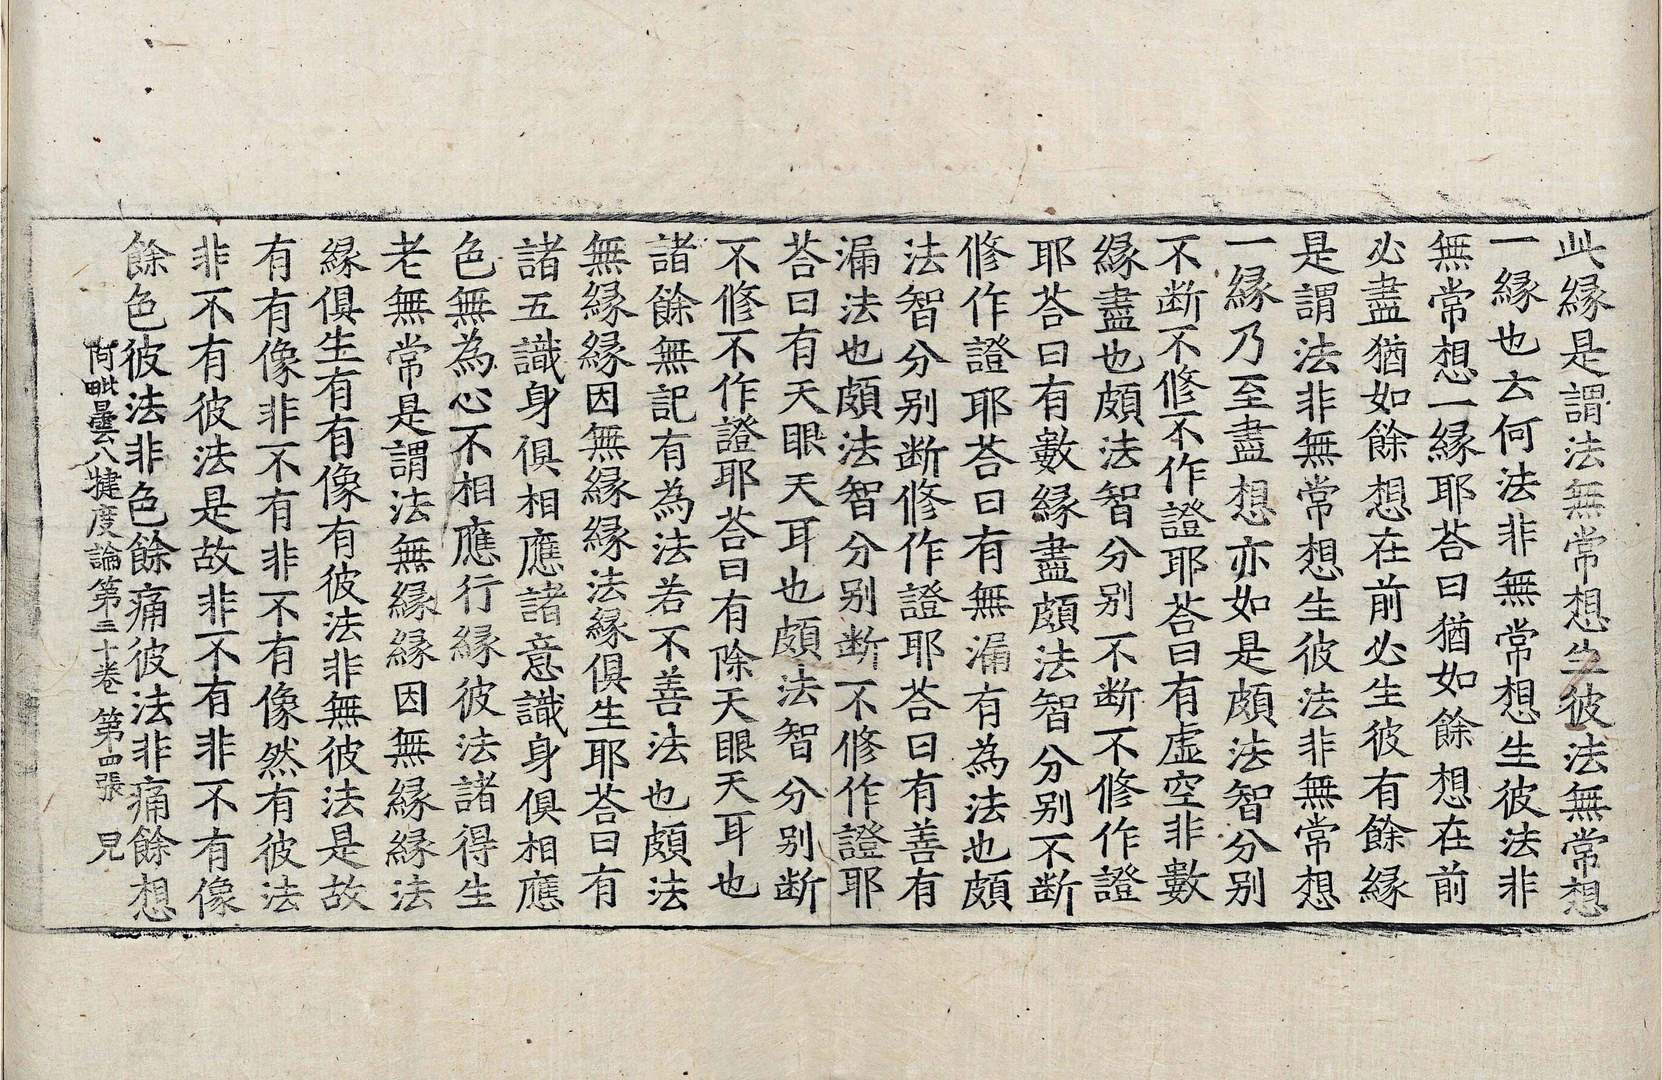 此縁是謂法無常想生彼法無常想
一縁也云何法非無常想生彼法非
無常想一縁耶荅曰猶如餘想在前
必盡猶如餘想在前必生彼有餘縁
是謂法非無常想生彼法非無常想
一縁乃至盡想亦如是頗法智分别
不断不修不作證耶荅曰有虚空非數
縁盡也頗法智分别不断不修作證
耶荅曰有數縁盡頗法智分别不断
修作證耶荅曰有無漏有為法也頗
法智分别断修作證耶荅曰有善有
漏法也頗法智分别断不修作證耶
荅曰有天眼天耳也頗法智分别断
不修不作證耶荅曰有除天眼天耳也
諸餘無記有為法若不善法也頗法
無縁縁因無縁縁法縁俱生耶荅曰有
諸五識身俱相應諸意識身俱相應
色無為心不相應行縁彼法諸得生
老無常是謂法無縁縁因無縁縁法
縁俱生有有像有彼法非無彼法是故
有有像非不有非不有像然有彼法
非不有彼法是故非不有非不有像
餘色彼法非色餘痛彼法非痛餘想
阿毗曇八犍度論第三十卷 第四張 兄